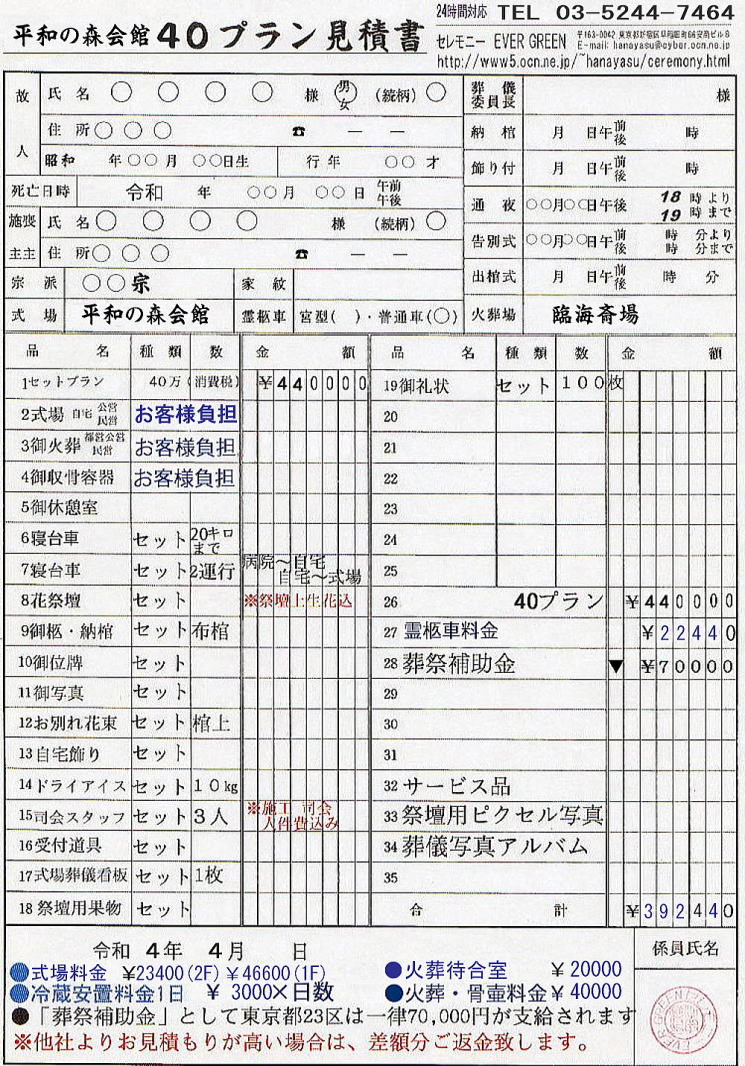 24時間対応 TEL 03-5244-7464
平和の森会館 40プラン見積書
セレモニー EVER GREEN
E-mail: hanayasu@cyber.ocn.ne.jp
http://www5.ocn.ne.jp/~hanayasu/ceremony.html
故人 氏名 ○ ○ ○ ○ 様 男女 (続柄) ○
住所 ○ ○ ○ ☎ ― ―
昭和 年○○月 ○○日生 行年 ○○才
死亡日時 令和 年 ○○月 ○○日 午前午後
施喪主主 氏名 ○ ○ ○ ○ 様 (続柄) ○
住所 ○ ○ ○ ☎ ― ―
宗派 ○○宗 家紋
式場 平和の森会館 霊柩車 宮型( )・普通車(○)
葬儀委員長 様
納棺 月 日午前後 時
飾り付 月 日午前後 時
通夜 ○○月○○日午後 18時より 19時まで
告別式 ○○月○○日午前後 時 分より 時 分まで
出棺式 月 日午前後 時 分
火葬場 臨海斎場
品名 種類 数 金額
1セットプラン 40万 (消費税) ¥440000
2式場 自宅 公営 民営 お客様負担
3御火葬 都営公営 民営 お客様負担
4御収骨容器 お客様負担
5御休憩室
6寝台車 セット 20キロまで
7寝台車 セット 2運行 病院～自宅 自宅～式場
8花祭壇 セット ※祭壇上生花込
9御柩・納棺 セット 布棺
10御位牌 セット
11御写真 セット
12お別れ花束 セット 棺上
13自宅飾り セット
14ドライアイス セット 10kg
15司会スタッフ セット 3人 ※施工 司会 人件費込み
16受付道具 セット
17式場葬儀看板 セット 1枚
18祭壇用果物 セット
品名 種類 数 金額
19御礼状 セット 100枚
20
21
22
23
24
25
26 40プラン ¥440000
27 霊柩車料金 ¥22440
28 葬祭補助金 ▼ ¥70000
29
30
31
32 サービス品
33 祭壇用ピクセル写真
34 葬儀写真アルバム
35
合計 ¥392440
令和 4年 4月 日
●式場料金 ¥23400(2F) ¥46600(1F)
●冷蔵安置料金1日 ¥3000×日数
●火葬待合室 ¥20000
●火葬・骨壺料金 ¥40000
●「葬祭補助金」として東京都23区は一律70,000円が支給されます
※他社よりお見積もりが高い場合は、差額分ご返金致します。
係員氏名